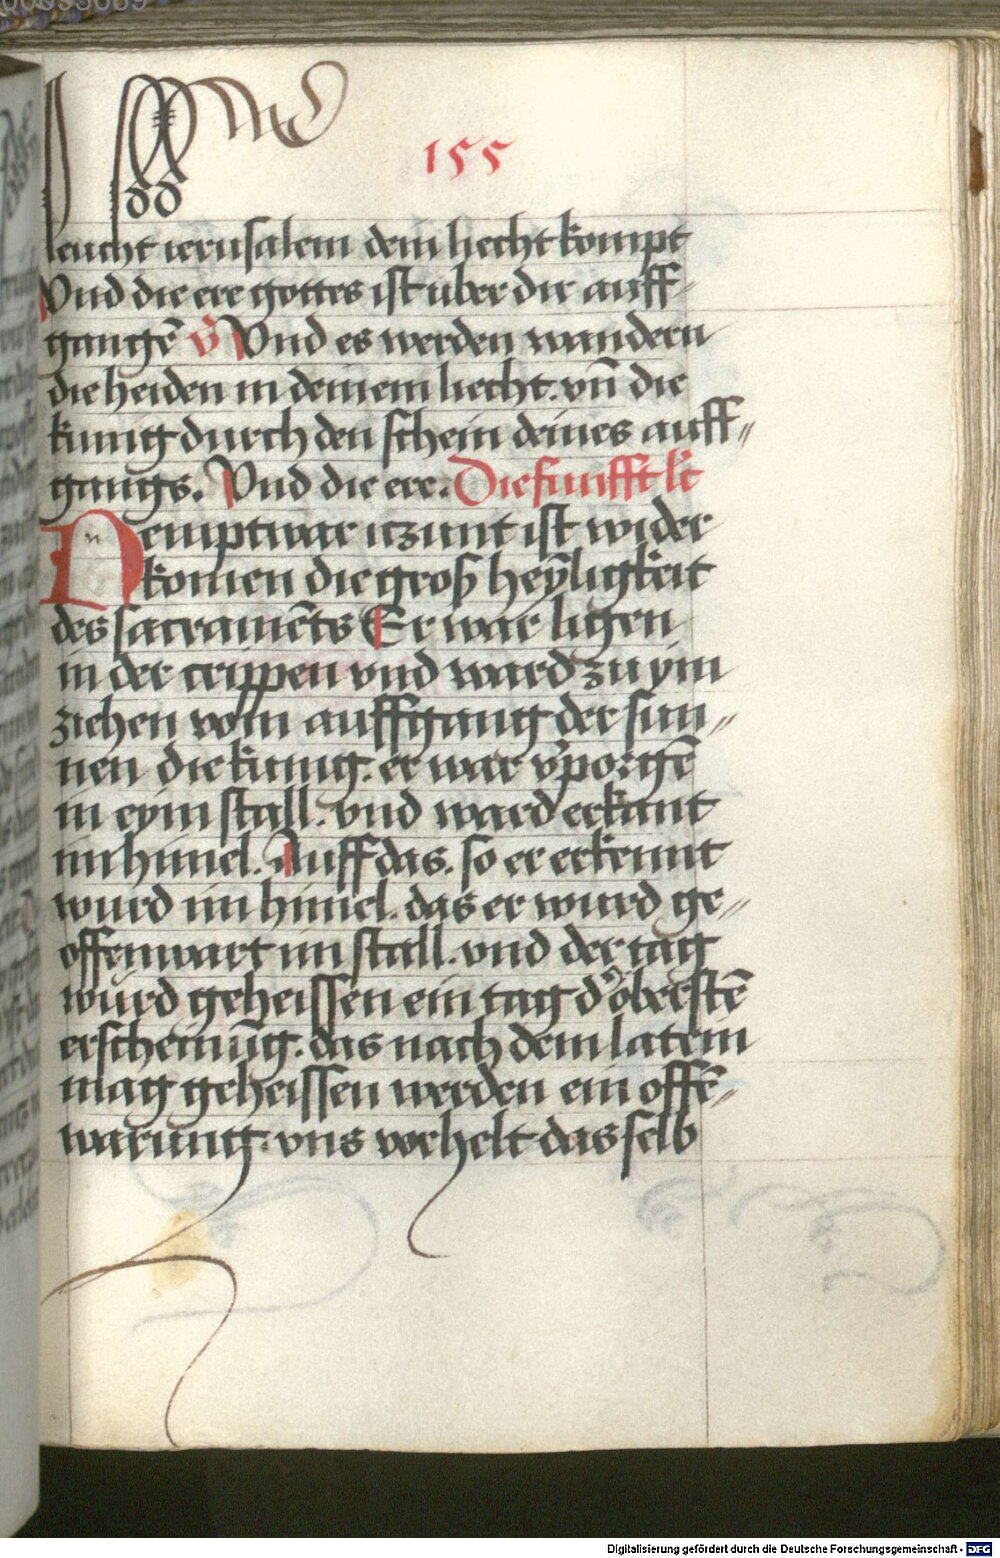 155
leucht ierusalem dein liecht kompt
Vnd die ere gottes ist uber dir auff-
gangē v̄ Vnd es werden wandern
die heiden in deinem liecht. vn̄ die
kunig durch den schein deines auff=
gangs. Vnd die ere. Die funfft lc̄
Nemptwar iczunt ist wider
komen die gros heyligkeit
des sacramēts Er war ligen
in der crippen vnd ward zu ym
ziehen vom auffgang der sun=
nen die kunig. er war v̓porgē
in eym stall. vnd ward erkant
im himel. Auff das. so er erkennt
wurd im himel. das er wurd ge=
offenwart im stall. vnd der tag
wurd geheissen ein tag d̓ öberstē
erscheinūg. das nach dem latein
mag geheissen werden ein offē=
warung. vns vorhelt das selb
Digitalisierung gefördert durch die Deutsche Forschungsgemeinschaft - DFG